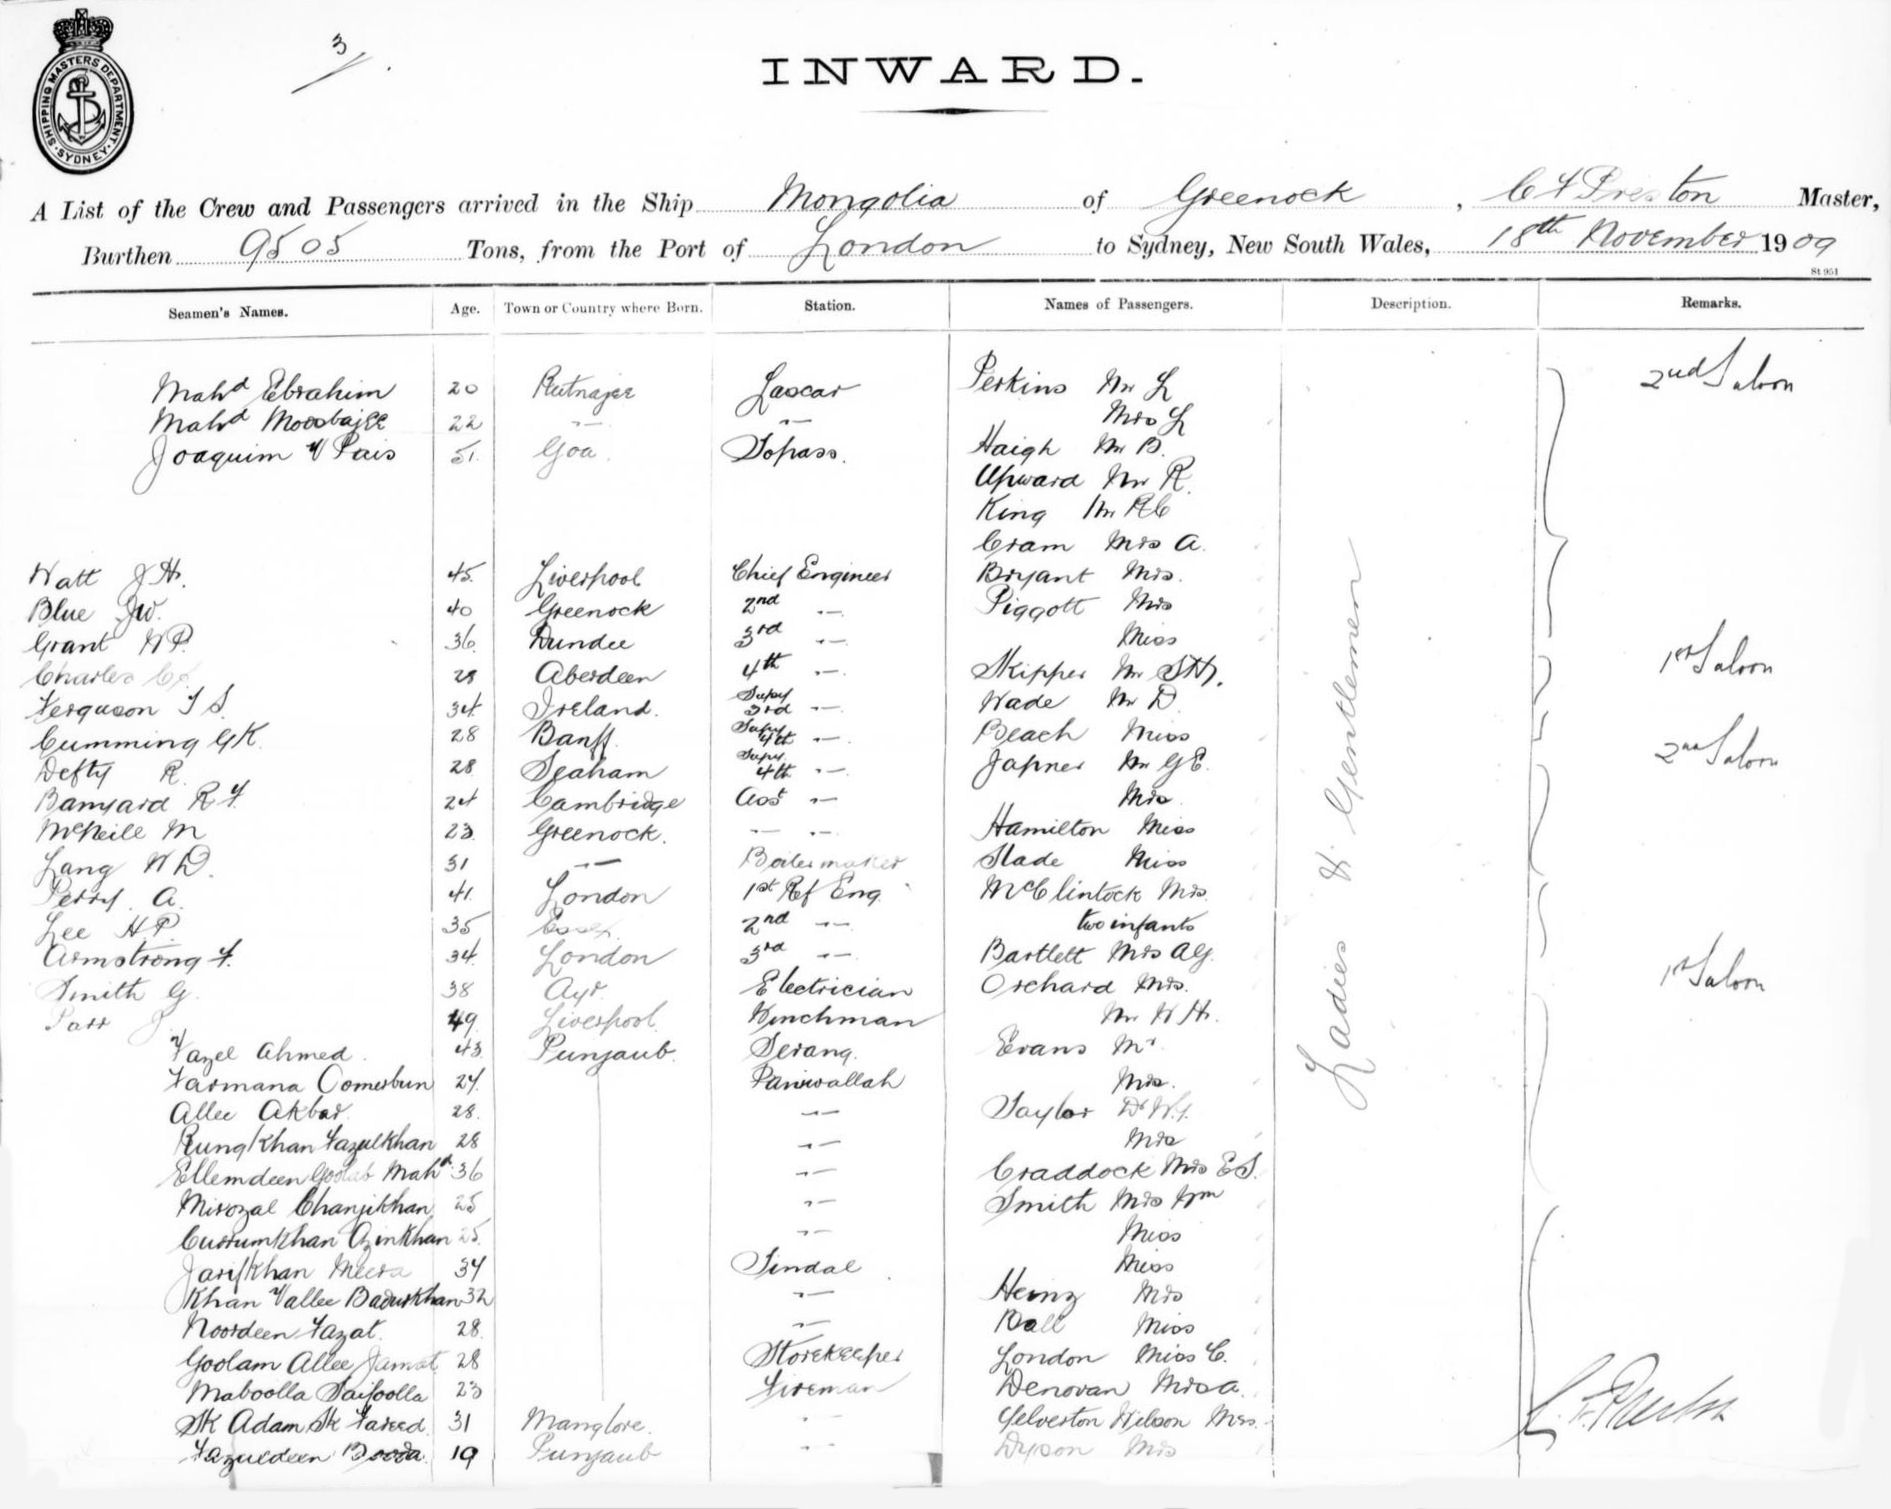 3/.
INWARD.
SHIPPING MASTERS DEPARTMENT. SYDNEY.
A List of the Crew and Passengers arrived in the Ship Mongolia of Greenock, C F Preston Master,
Burthen 9505 Tons, from the Port of London to Sydney, New South Wales, 18th November 1909
St 951
Seamen's Names. Age. Town or Country where Born. Station. Names of Passengers. Description. Remarks.
Mahd Ebrahim 20 Rutnajee Lascar Perkins Mr L 2nd Saloon
Mahd Moosbajee 22 -"- -"- Mrs L
Joaquim V Pais 51. Goa. Topass. Haigh Mr B.
Upward Mr R.
King Mr
Cram Mrs A.
Watt J H. 45. Liverpool Chief Engineer Bryant Mrs.
Blue J W. 40 Greenock 2nd -"- Piggott Mrs
Grant W P. 36. Dundee 3rd -"- Miss
Charles 28 Aberdeen 4th -"- Skipper Mr S H. 1st Saloon
Ferguson T S. 34 Ireland. Supy 3rd -"- Wade Mr D.
Cumming G K. 28 Banff. Supy 4th -"- Beach Miss
Defty R. 28 Seaham Supy 4th -"- Japner Mr G E. 2nd Saloon
Banyard R F 24 Cambridge Asst -"- Mrs.
McNeile M 23. Greenock. -"- -"- Hamilton Miss
Lang W D. 31 -"- Boilermaker Slade Miss
Perry. A. 41. London 1st Ref Eng. McClintock Mrs.
Lee H P. 35 Essex. 2nd -"- two infants
Armstrong F. 34. London 3rd -"- Bartlett Mrs A G.
Smith G. 38 Ayr. Electrician Orchard Mrs. 1st Saloon
Parr J 49 Liverpool. Winchman Mr W H.
Fazel Ahmed. 43. Punjaub. Serang. Evans Mr
Farmana Oomerbun 24. Paniwallah Mrs.
Allee Akbar. 28. -"- Taylor Dr
Rungkhan Fazulkhan 28 -"- Mrs
Ellemdeen Goolab Mahd. 36 -"- Craddock Mrs E S.
Mirozal Chanjikhan. 25 -"- Smith Mrs Wm
Currumkhan Azinkhan 25. -"- Miss
Jarifkhan Meera 34 Tindal Miss
Khan Vallee Badurkhan 32 -"- Heinz Mrs
Noordeen Fazat. 28. -"- Ball Miss
Goolam Allee Jamat 28 Storekeeper London Miss C.
Maboolla Saifoolla 23 Fireman Denovan Mrs A.
SK Adam SK Fareed. 31 Manglore. -"- Yelverton Wilson Mrs.
Fazueldeen Boora. 19 Punjaub -"- Dyson Mrs
Ladies & Gentlemen
C. F. Preston